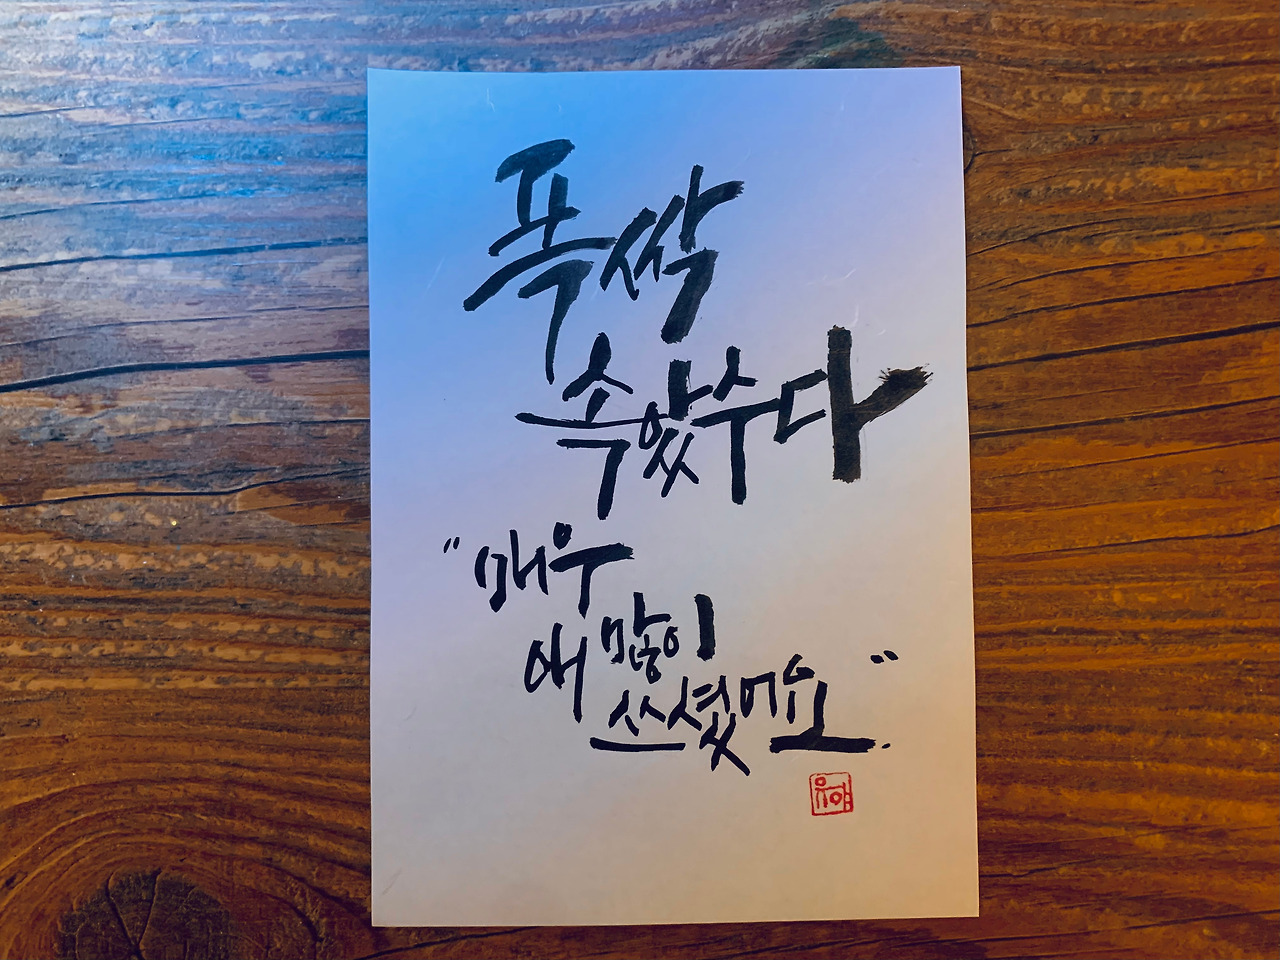 폭싹
속았수다
"매우
애 많이
쓰셨어요."